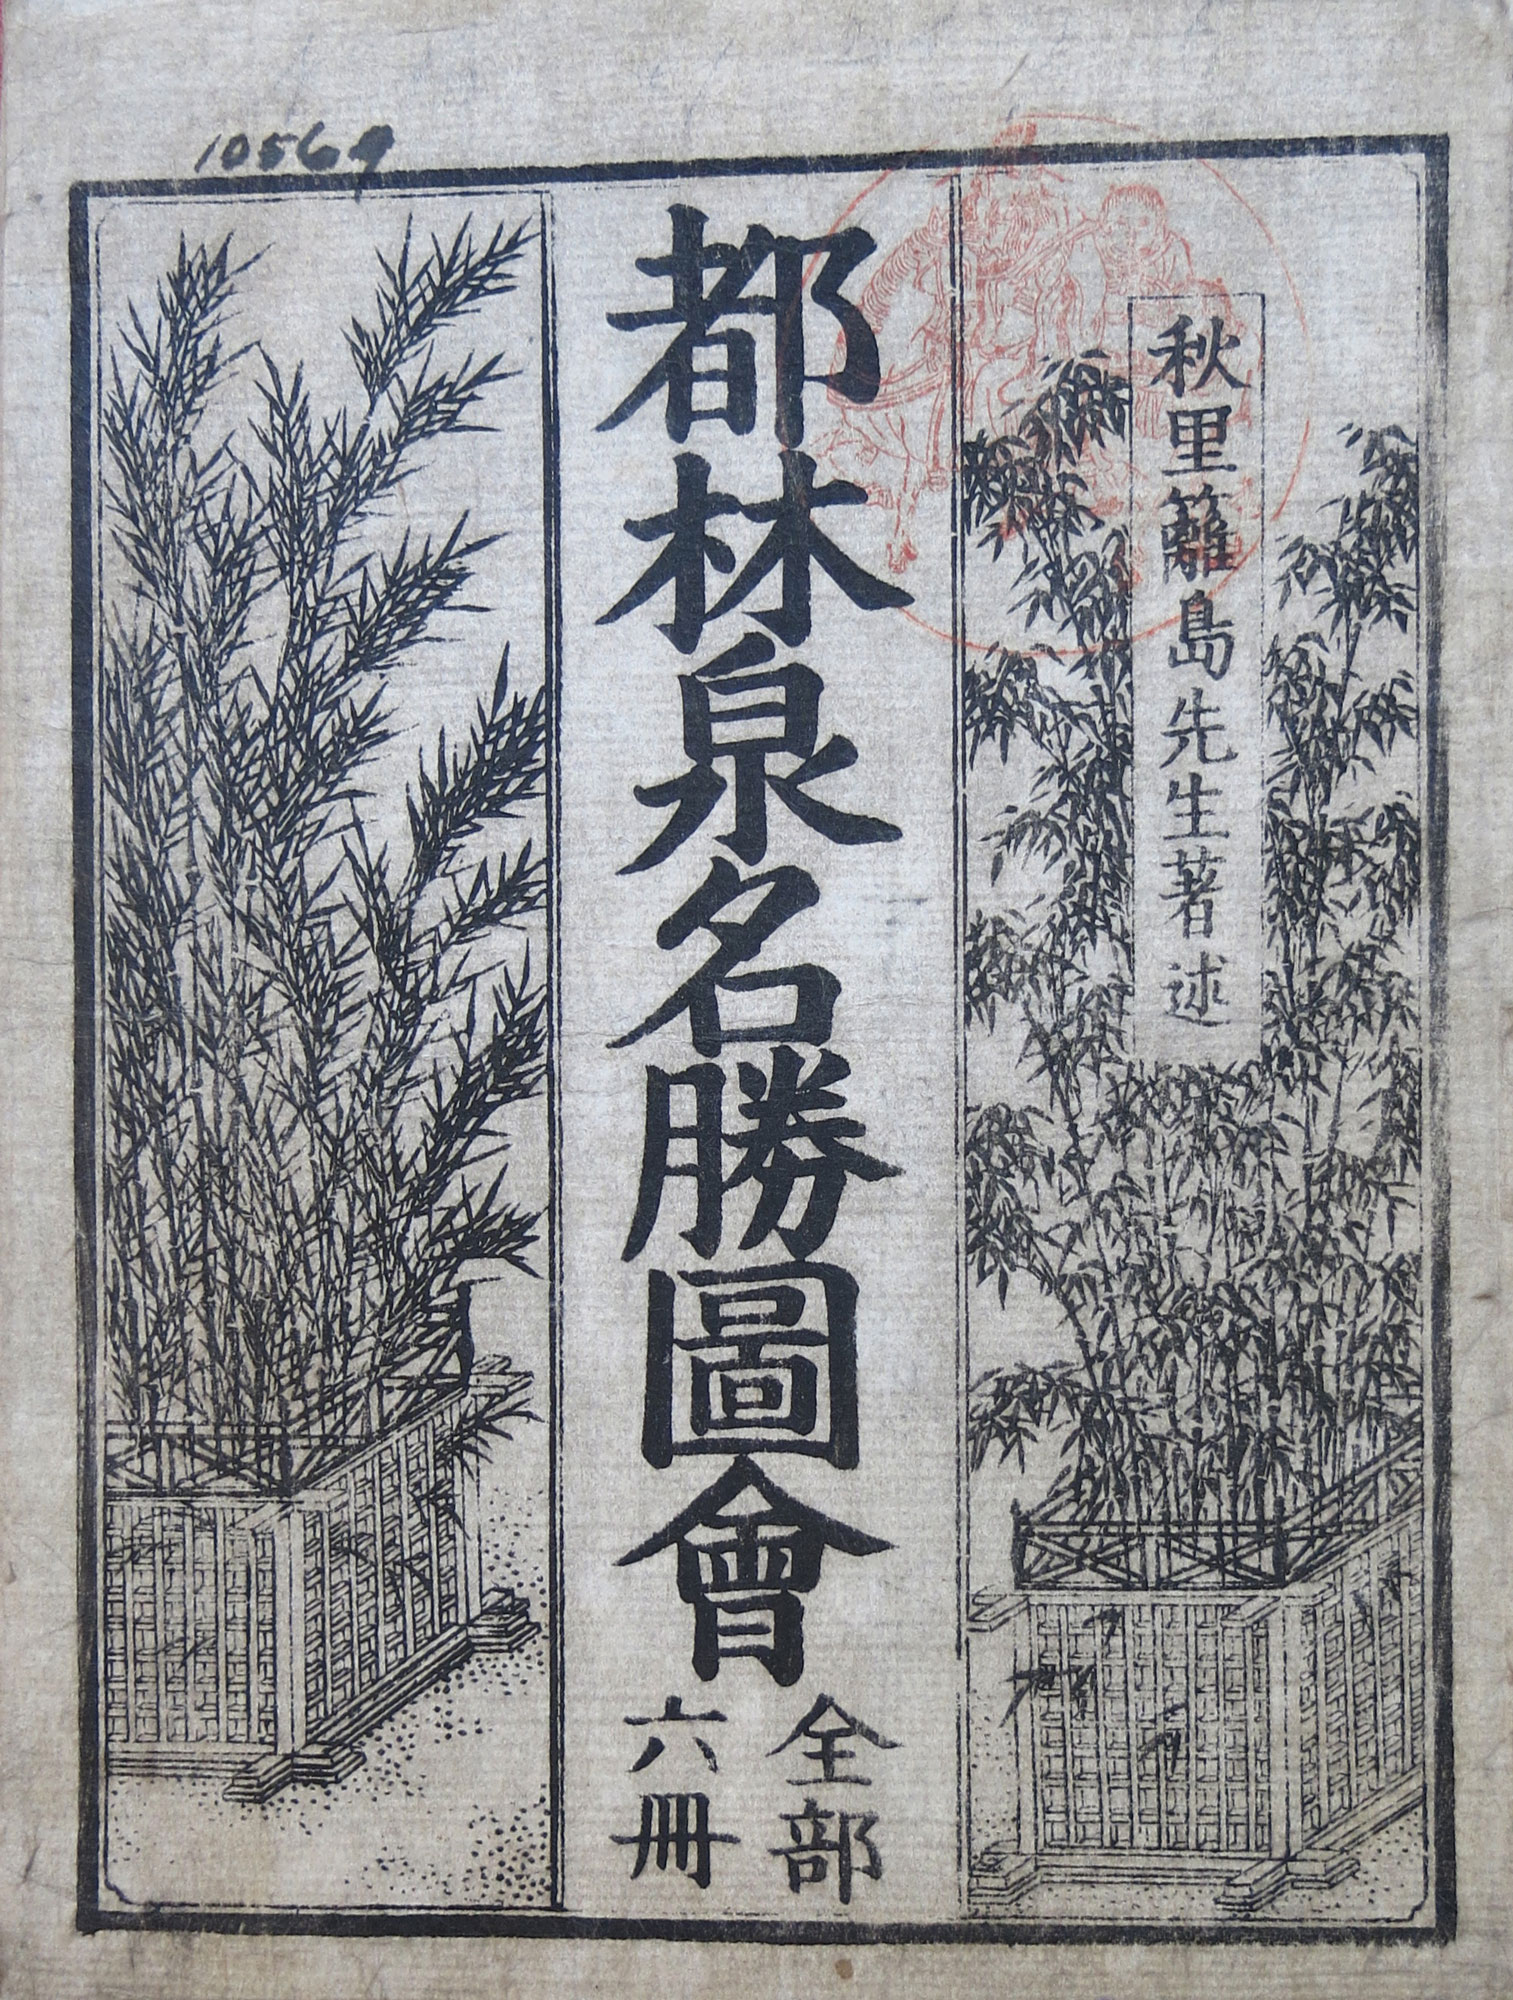 10569
秋里籬島先生著述
都林泉名勝圖會
全部
六冊